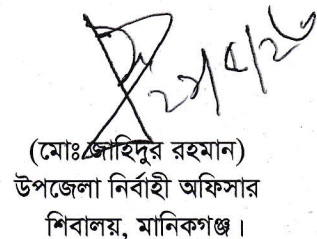 (মোঃ জাহিদুর রহমান)
উপজেলা নির্বাহী অফিসার
শিবালয়, মানিকগঞ্জ।